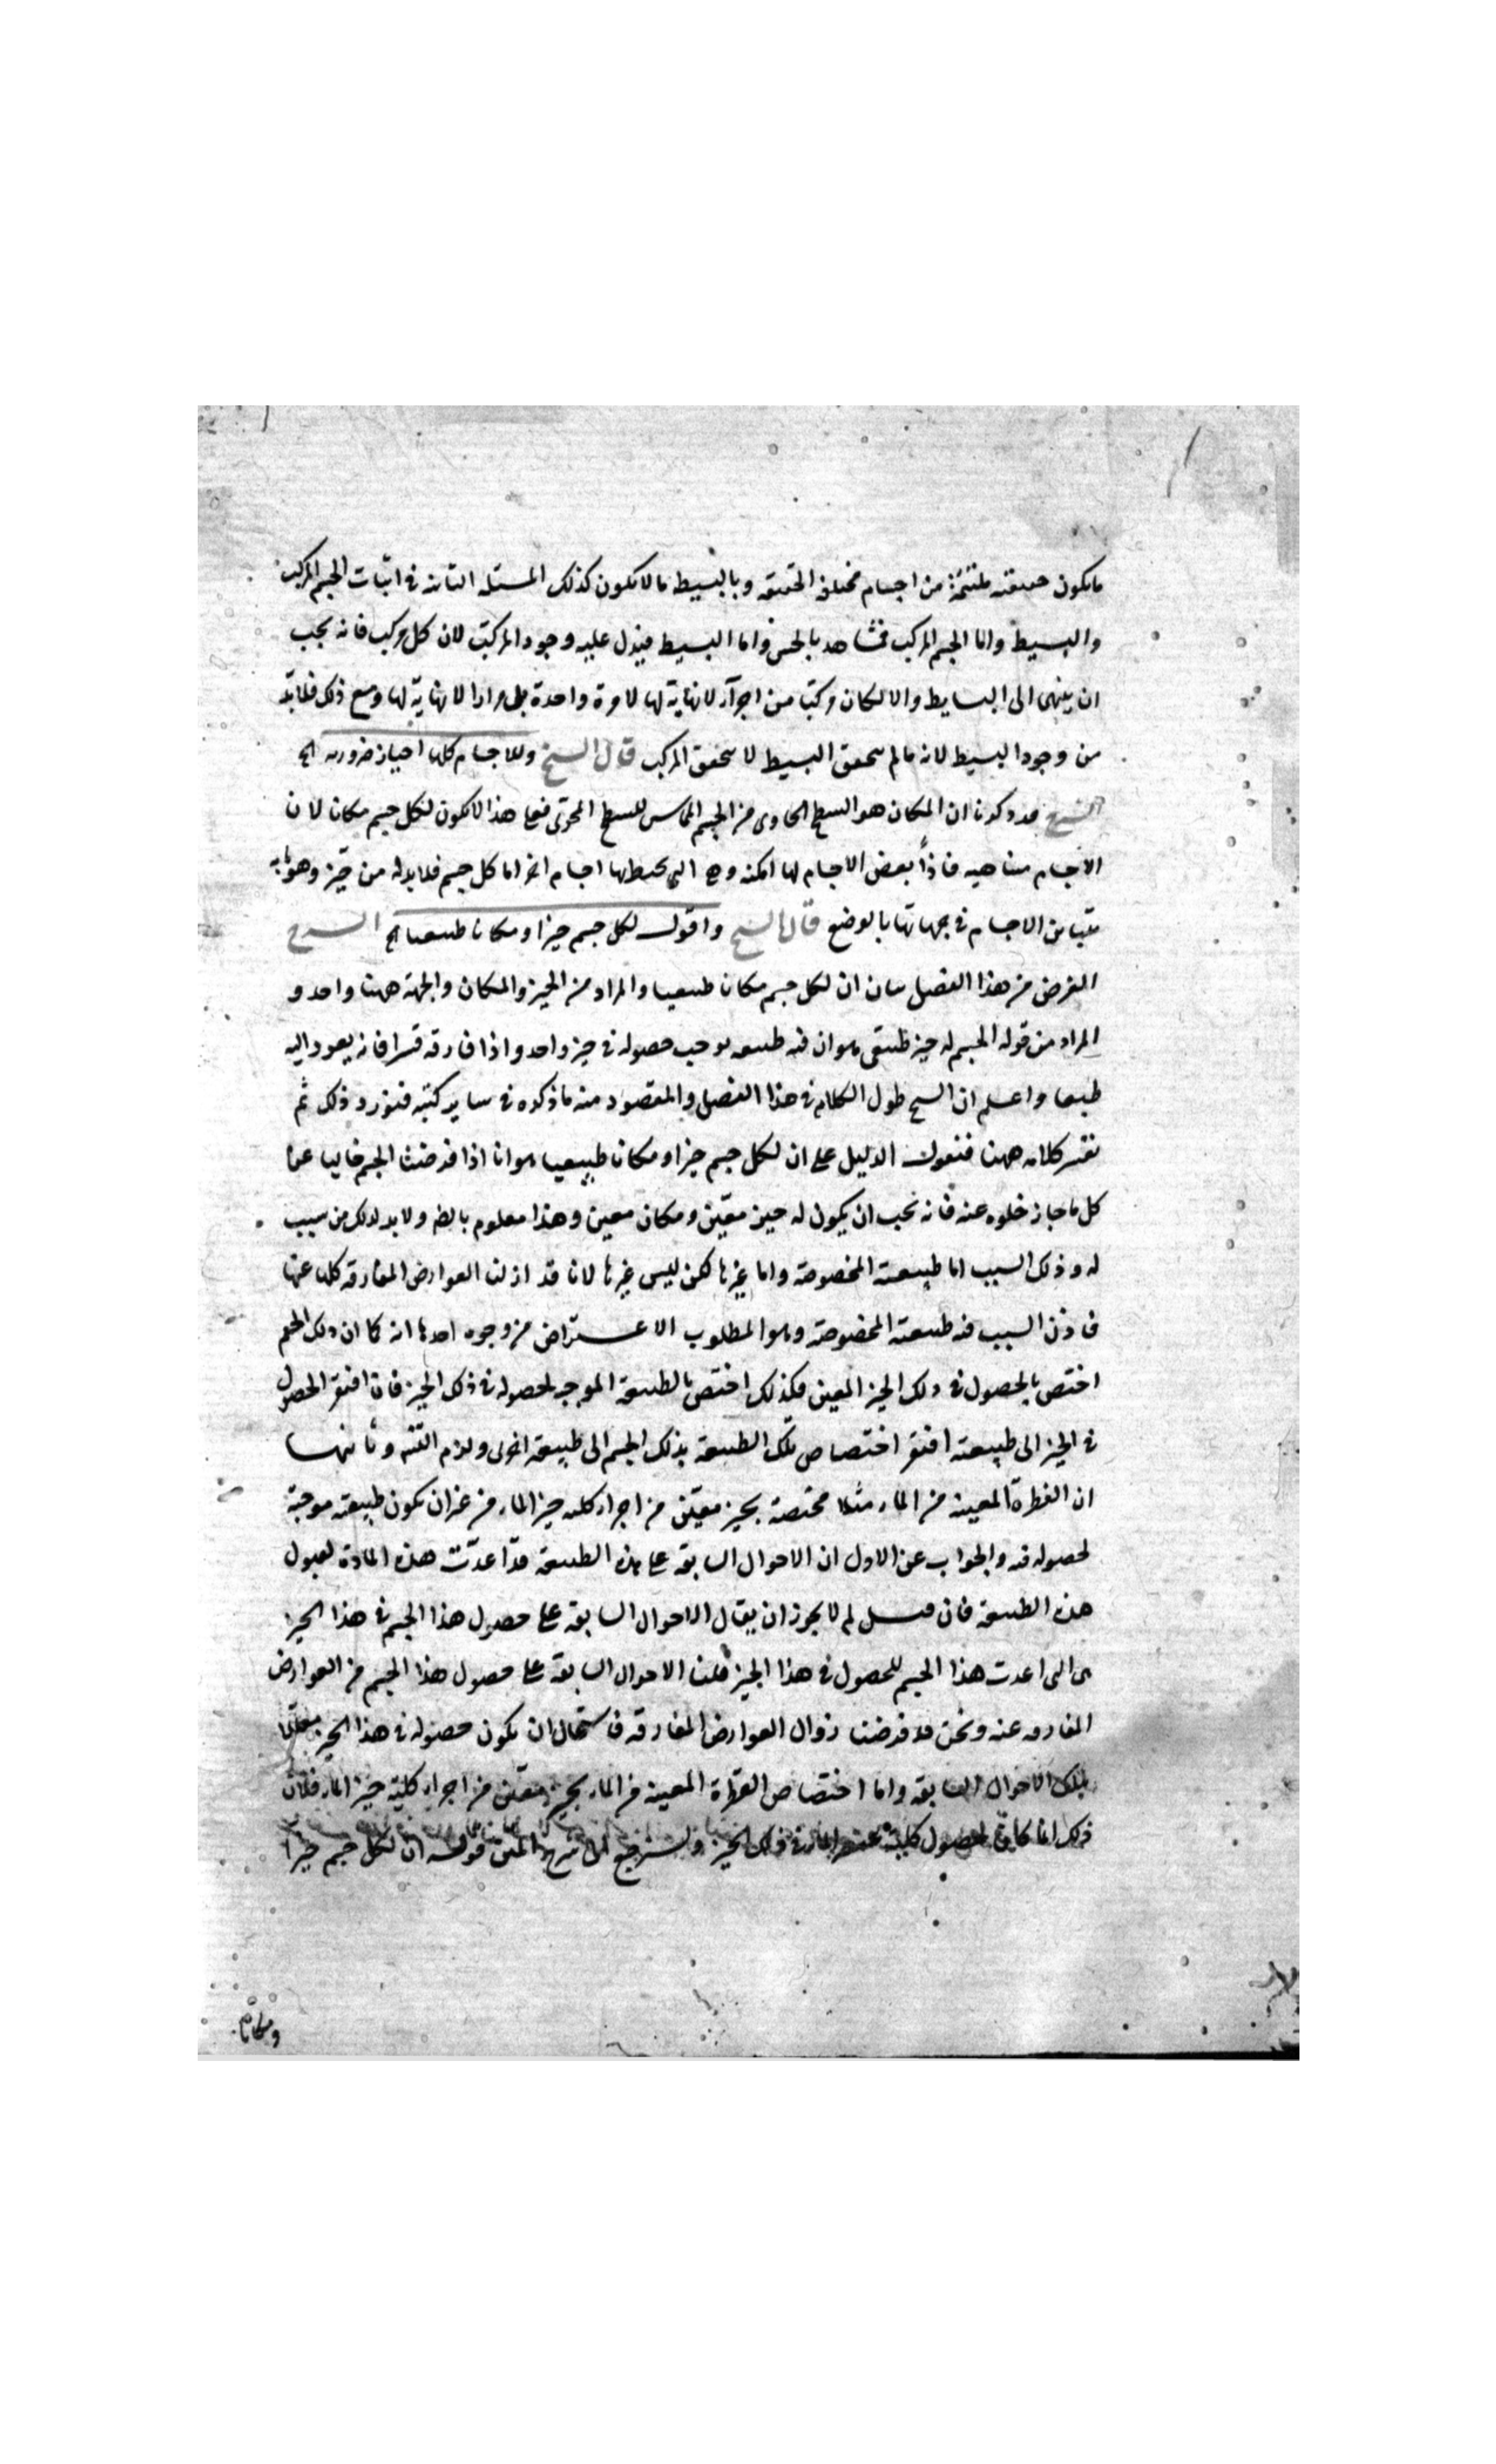 ما يكون حقيقته ملتئمة من اجسام مختلفة الحقيقة وبالبسيط ما لا يكون كذلك المسئلة الثانية في اثبات الجسم المركب
والبسيط واما الجسم المركب فمشاهد بالحس واما البسيط فيدل عليه وجود المركب لان كل مركب فانه يجب
ان ينتهى الى البسايط والا لكان مركبا من اجزآء لا نهاية لها لا مرة واحدة بل مرارا لا نهاية لها ومع ذلك فلابد
من وجود البسيط لانه ما لم يتحقق البسيط لا يتحقق المركب قال الشيخ وللاجسام كلها احياز ضرورية الخ
الشرح قد ذكرنا ان المكان هو السطح الحاوى من الجسم المماس للسطح المحوى فعلى هذا لا يكون لكل جسم مكانا لان
الاجسام متناهية فاذاً بعض الاجسام لها امكنة وهى التى يحيط بها اجسام اخر اما كل جسم فلابد له من حيز وهو ما به
يتباين الاجسام في جهاتها بالوضع قال الشيخ واقول لكل جسم حيزا ومكانا طبيعيا الخ الشرح
الغرض من هذا الفصل بيان ان لكل جسم مكانا طبيعيا والمراد من الحيز والمكان والجهة ههنا واحد و
المراد من قوله الجسم له حيز طبيعى هو ان فيه طبيعة توجب حصوله في حيز واحد واذا فارقه قسرا فانه يعود اليه
طبعا واعلم ان الشيخ طول الكلام في هذا الفصل والمقصود منه ما ذكره في ساير كتبه فنورد ذلك ثم
نفسر كلامه ههنا فنقول الدليل على ان لكل جسم حيزا ومكانا طبيعيا هو انا اذا فرضنا الجسم خاليا عن
كل ما جاز خلوه عنه فانه يجب ان يكون له حيز معين ومكان معين وهذا معلوم بالضرورة ولابد لذلك من سبب
له وذلك السبب اما طبيعته المخصوصة واما غيرها لكن ليس غيرها لانا قد ازلنا العوارض المفارقة كلها عنها
فاذن السبب فيه طبيعته المخصوصة وهو المطلوب الاعتراض من وجوه احدها انه كما ان ذلك الجسم
اختص بالحصول في ذلك الحيز المعين فكذلك اختص بالطبيعة الموجبة لحصوله في ذلك الحيز فان افتقر الحصول
في الحيز الى طبيعته افتقر اختصاص تلك الطبيعة بذلك الجسم الى طبيعة اخرى ولزم التسلسل وثانيهما
ان القطرة المعينة من الماء مثلا مختصة بحيز معين من اجزاء كلية حيز الماء من غير ان يكون طبيعته موجبة
لحصوله فيه والجواب عن الاول ان الاحوال السابقة على هذه الطبيعة قد اعدت هذه المادة لقبول
هذه الطبيعة فان قيل لم لا يجوز ان يقال الاحوال السابقة على حصول هذا الجسم في هذا الحيز
هى التى اعدت هذا الجسم للحصول في هذا الحيز قلنا الاحوال السابقة على حصول هذا الجسم من العوارض
المفارقة عنه ونحن قد فرضنا زوال العوارض المفارقة فاستحال ان يكون حصوله في هذا الحيز معللا
بتلك الاحوال السابقة واما اختصاص القطرة المعينة من الماء بحيز معين من اجزاء كلية حيز الماء فلان
ذلك انما كان لحصول كلية عنصر الماء في ذلك الحيز ولنرجع الى شرح المتن قوله ان لكل جسم حيزا
ومكانا